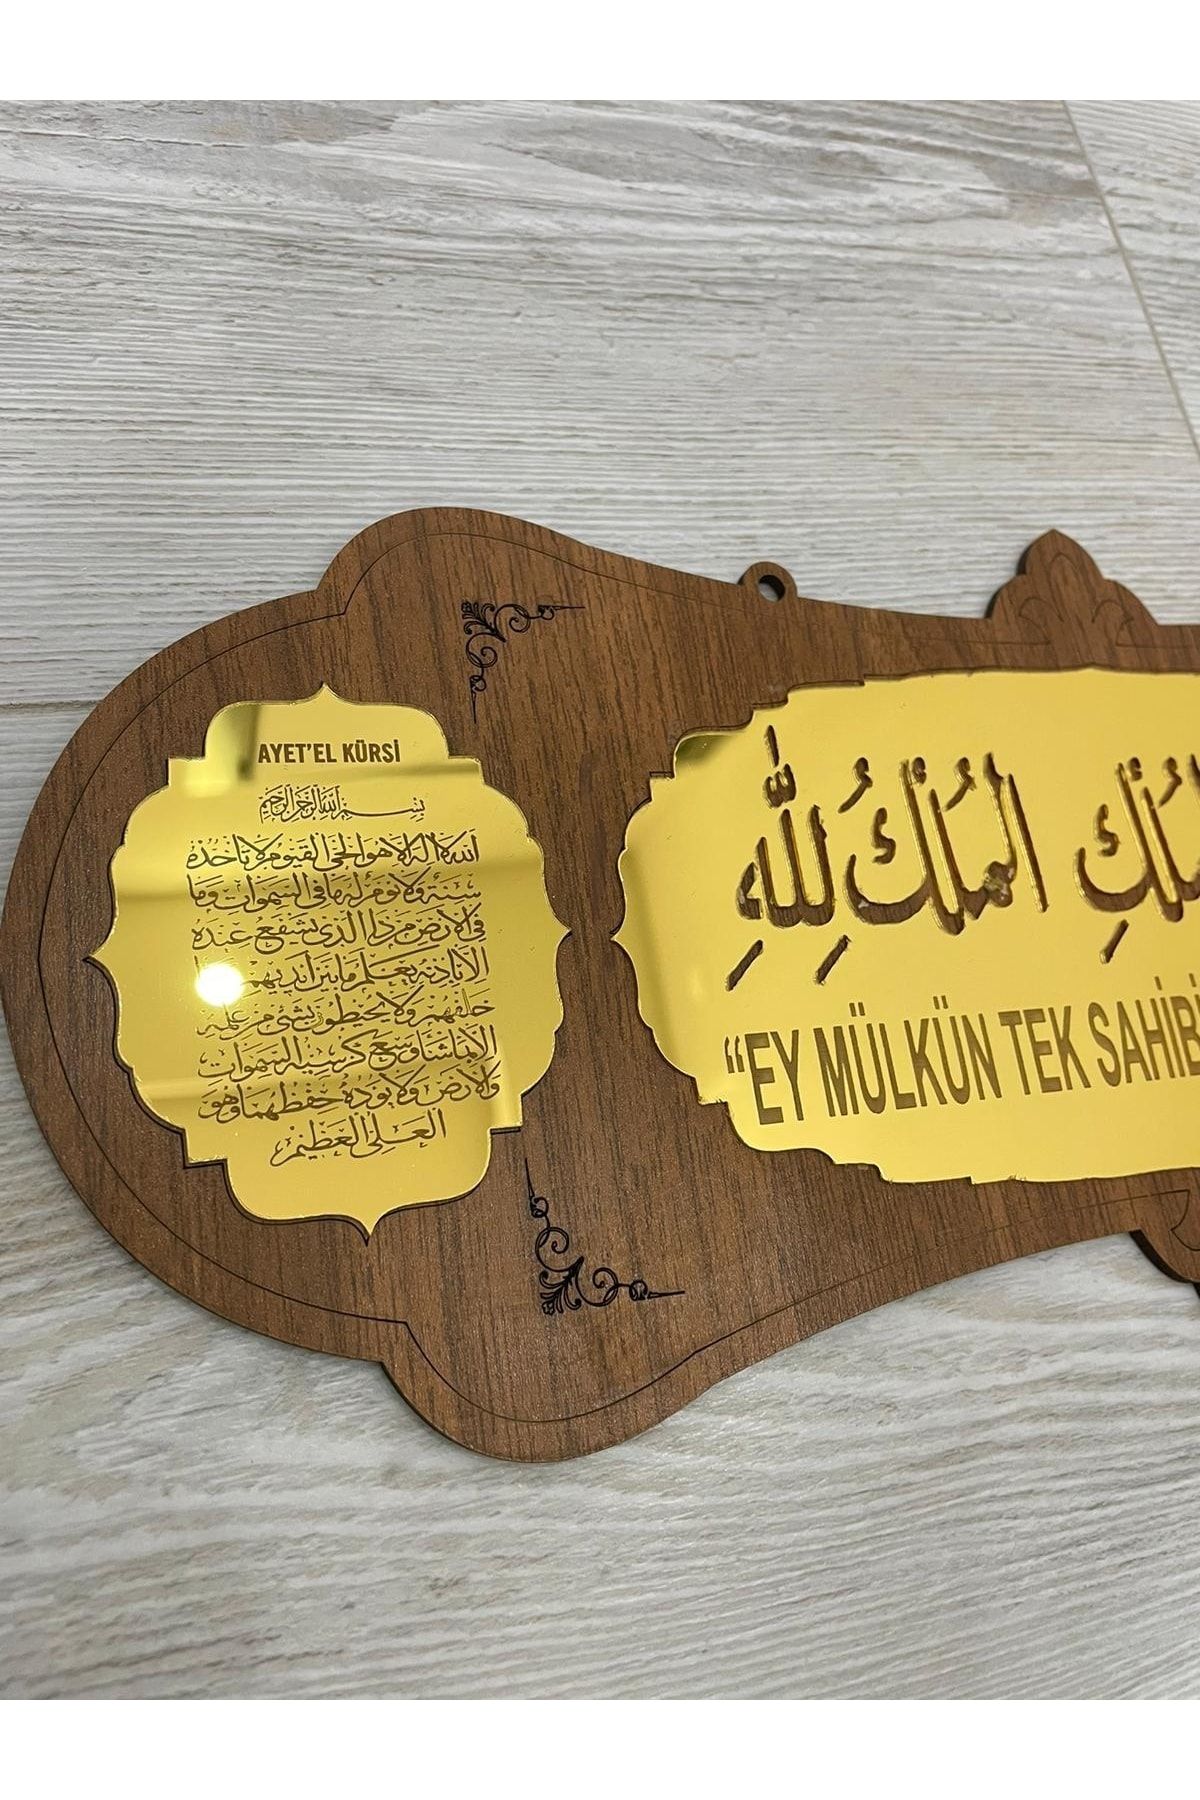 AYET'EL KÜRSİ
بسم الله الرحمن الرحيم
الله لا اله الا هو الحي القيوم لا تأخذه
سنة ولا نوم له ما في السموات وما
في الارض من ذا الذي يشفع عنده
الا باذنه يعلم ما بين ايديهم
خلفهم ولا يحيطون بشئ من علمه
الا بما شاء وسع كرسيه السموات
والارض ولا يؤده حفظهما وهو
العلي العظيم
الْمُلْكُ لِلّٰهِ
“EY MÜLKÜN TEK SAHİBİ